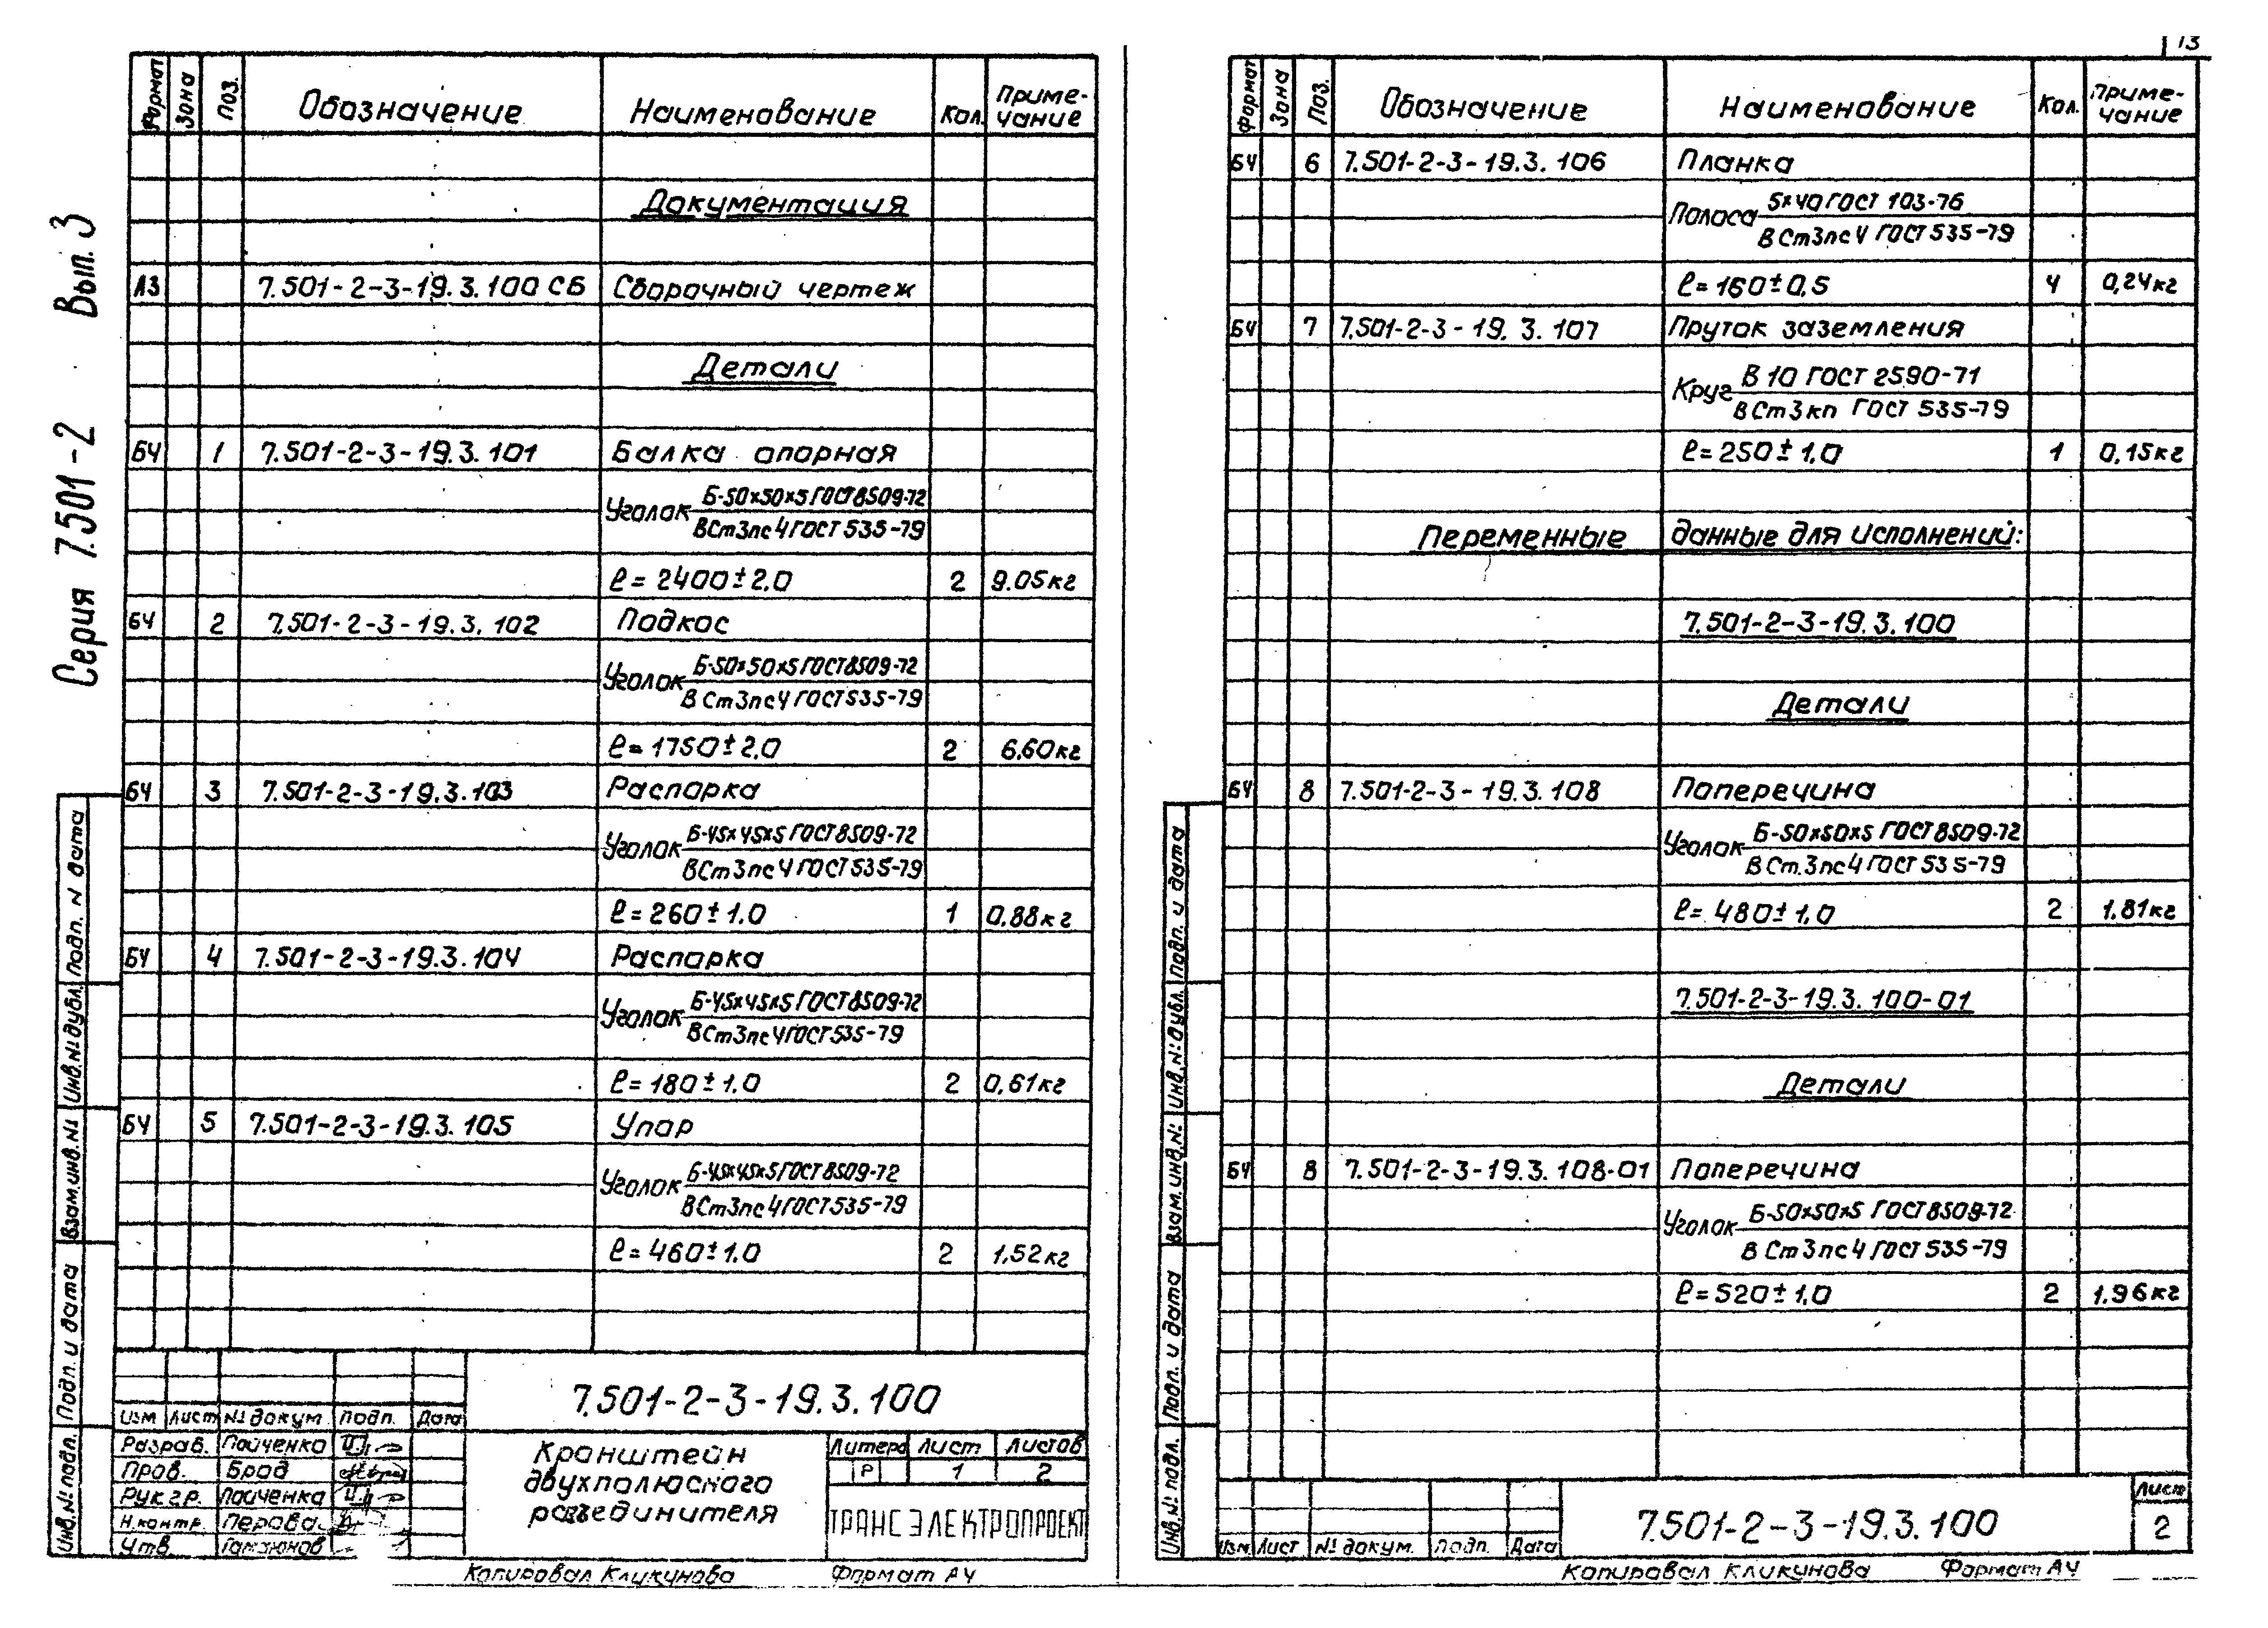 13
Серия 7.501-2 Вып. 3
Формат Зона Поз. Обозначение Наименование Кол. Приме-
чание
Документация
А3 7.501-2-3-19.3.100 СБ Сборочный чертеж
Детали
БЧ 1 7.501-2-3-19.3.101 Балка опорная
Уголок Б-50×50×5 ГОСТ 8509-72
ВСт3пс4 ГОСТ 535-79
ℓ=2400±2,0 2 9.05кг
БЧ 2 7.501-2-3-19.3.102 Подкос
Уголок Б-50×50×5 ГОСТ 8509-72
ВСт3пс4 ГОСТ 535-79
ℓ=1750±2,0 2 6,60кг
БЧ 3 7.501-2-3-19.3.103 Распорка
Уголок Б-45×45×5 ГОСТ 8509-72
ВСт3пс4 ГОСТ 535-79
ℓ=260±1,0 1 0,88кг
БЧ 4 7.501-2-3-19.3.104 Распорка
Уголок Б-45×45×5 ГОСТ 8509-72
ВСт3пс4 ГОСТ 535-79
ℓ=180±1,0 2 0,61кг
БЧ 5 7.501-2-3-19.3.105 Упор
Уголок Б-45×45×5 ГОСТ 8509-72
ВСт3пс4 ГОСТ 535-79
ℓ=460±1,0 2 1,52кг
Инв.№ подл. Подп. и дата Взам.инв.№ Инв.№ дубл. Подп. и дата
Изм Лист № докум. Подп. Дата
7.501-2-3-19.3.100
Разраб. Пайченко
Пров. Брод
Рук.гр. Пайченко
Н.контр. Перова
Утв.
Кронштейн
двухполюсного
разъединителя
Литера Лист Листов
Р 1 2
ТРАНСЭЛЕКТРОПРОЕКТ
Копировал Кликунова Формат А4
Формат Зона Поз. Обозначение Наименование Кол. Приме-
чание
БЧ 6 7.501-2-3-19.3.106 Планка
Полоса 5×40 ГОСТ 103-76
ВСт3пс4 ГОСТ 535-79
ℓ=160±0,5 4 0,24кг
БЧ 7 7.501-2-3-19.3.107 Пруток заземления
Круг В 10 ГОСТ 2590-71
ВСт3кп ГОСТ 535-79
ℓ=250±1,0 1 0,15кг
Переменные данные для исполнений:
7.501-2-3-19.3.100
Детали
БЧ 8 7.501-2-3-19.3.108 Поперечина
Уголок Б-50×50×5 ГОСТ 8509-72
ВСт.3пс4 ГОСТ 535-79
ℓ=480±1,0 2 1,81кг
7.501-2-3-19.3.100-01
Детали
БЧ 8 7.501-2-3-19.3.108-01 Поперечина
Уголок Б-50×50×5 ГОСТ 8509-72
ВСт3пс4 ГОСТ 535-79
ℓ=520±1,0 2 1,96кг
Инв.№ подл. Подп. и дата Взам.инв.№ Инв.№ дубл. Подп. и дата
Изм. Лист № докум. Подп. Дата
7.501-2-3-19.3.100
Лист
2
Копировал Кликунова Формат А4